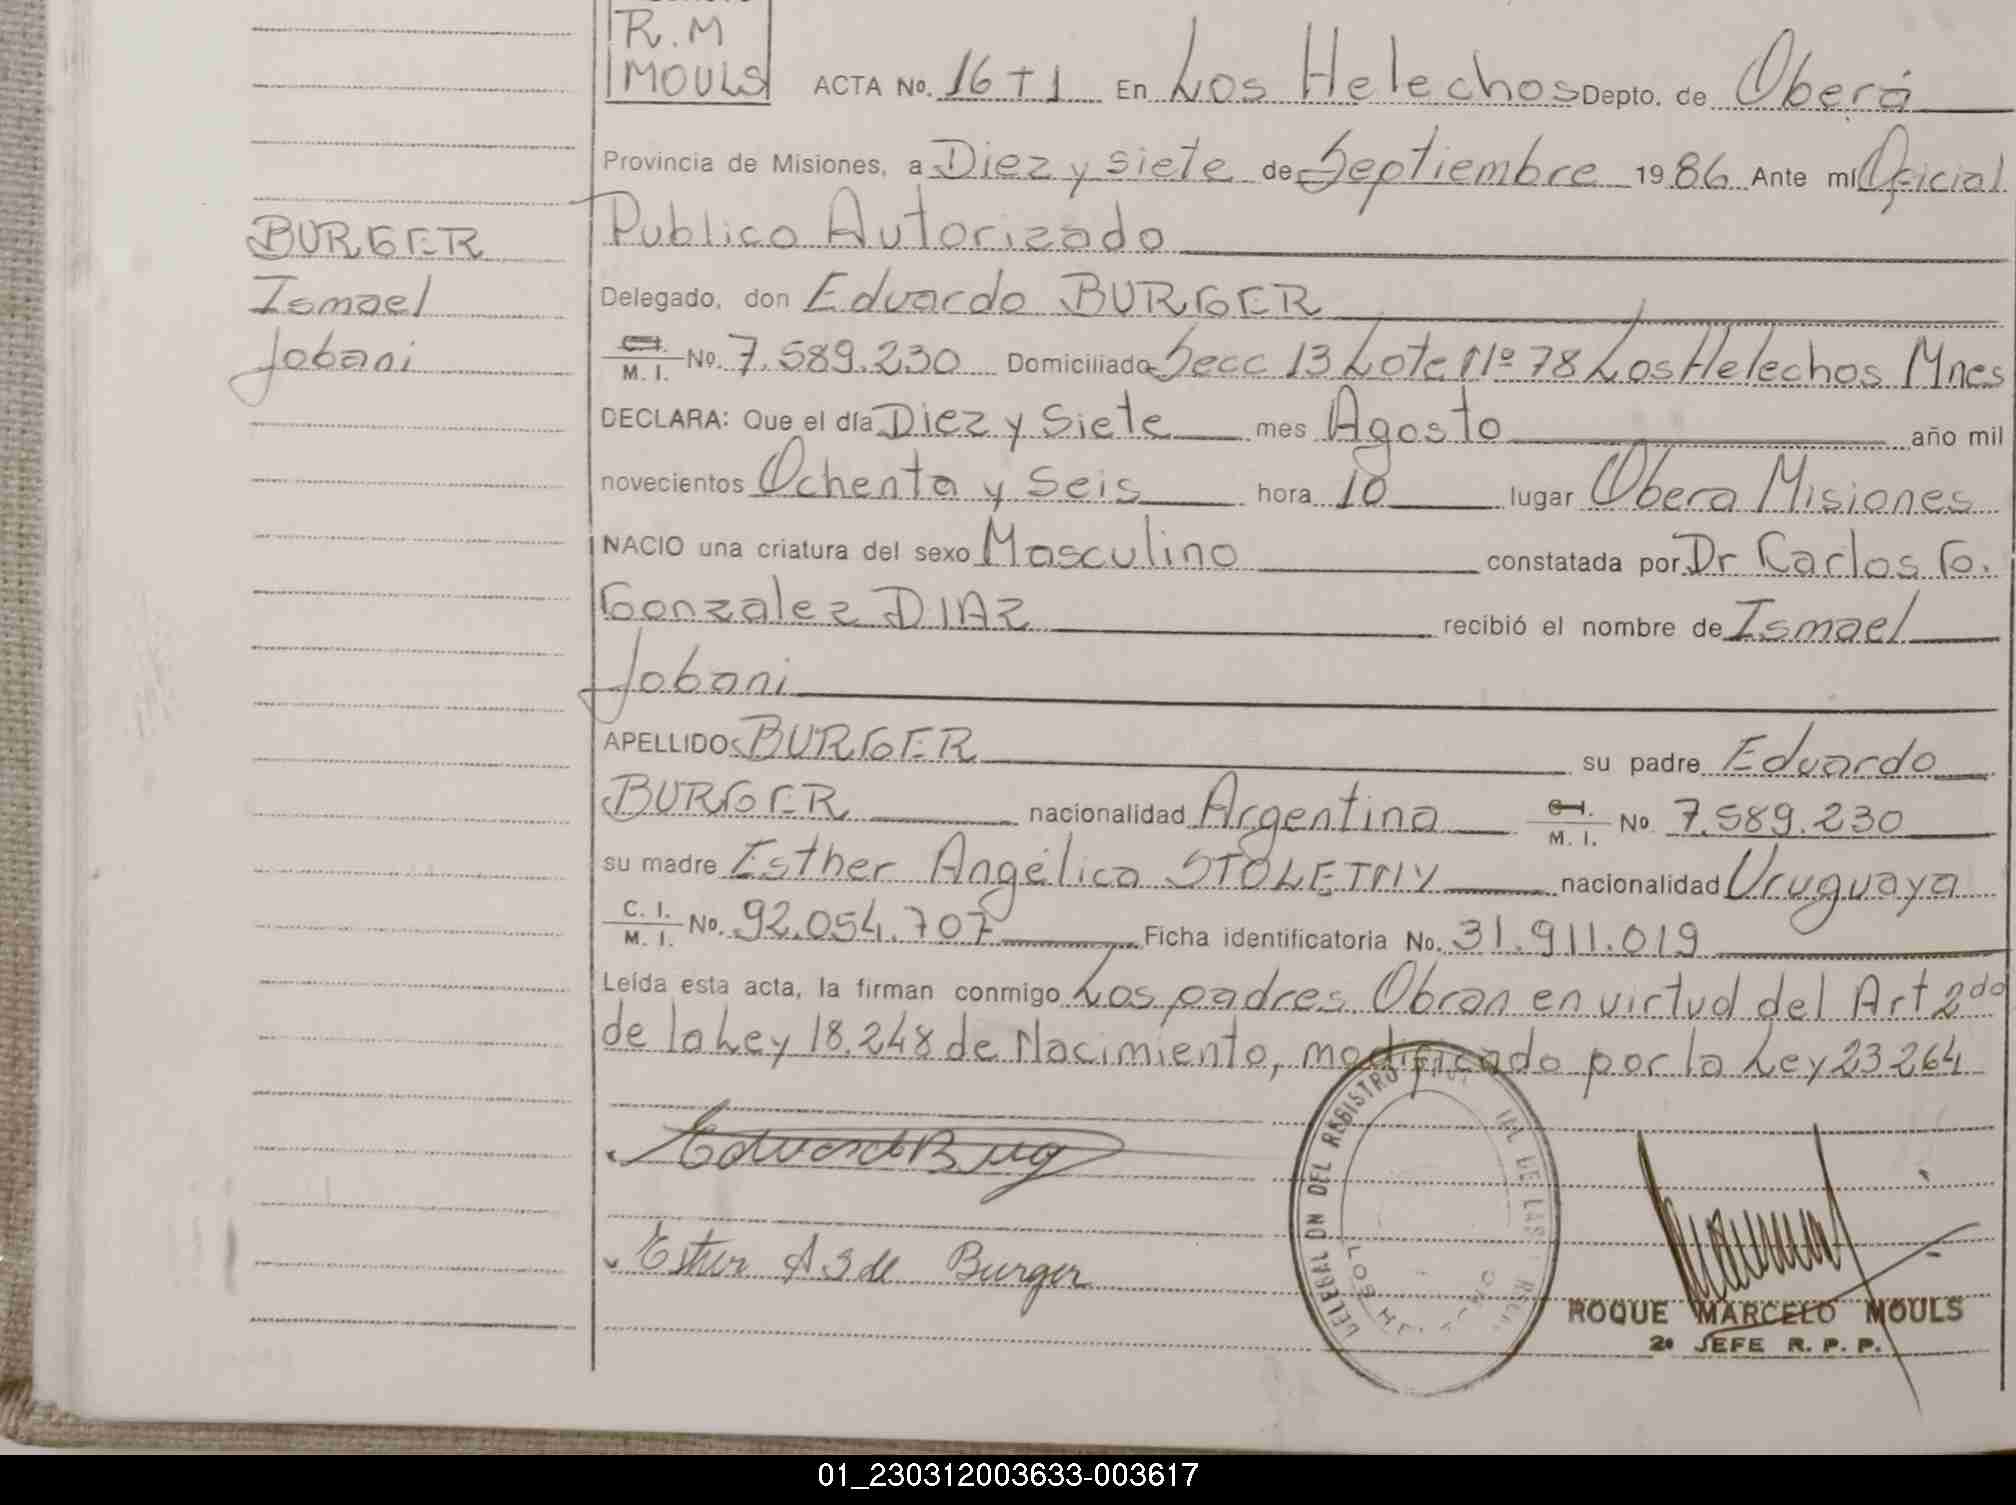 R.M
MOULS
ACTA No. 16 T 1 En Los Helechos Depto. de Oberá
Provincia de Misiones, a Diez y siete de Septiembre 1986 Ante mí Oficial
Publico Autorizado
BURGER
Ismael
Jobani
Delegado, don Eduardo BURGER
C.I. M. I. No. 7.589.230 Domiciliado Secc 13 Lote Nº 78 Los Helechos Mnes
DECLARA: Que el día Diez y Siete mes Agosto año mil
novecientos Ochenta y Seis hora 10 lugar Obera Misiones
NACIO una criatura del sexo Masculino constatada por Dr Carlos G.
Gonzalez DIAZ recibió el nombre de Ismael
Jobani
APELLIDO BURGER su padre Eduardo
BURGER nacionalidad Argentina C.I. M. I. No 7.589.230
su madre Esther Angélica STOLETNIY nacionalidad Uruguaya
C. I. M. I. No. 92.054.707 Ficha identificatoria No. 31.911.019
Leída esta acta, la firman conmigo Los padres. Obran en virtud del Art 2do
de la Ley 18.248 de Nacimiento, modificado por la Ley 23264
Eduardo Burg
Esther A S de Burger
DELEGACION DEL REGISTRO
ROQUE MARCELO MOULS
2º JEFE R. P. P.
01_230312003633-003617